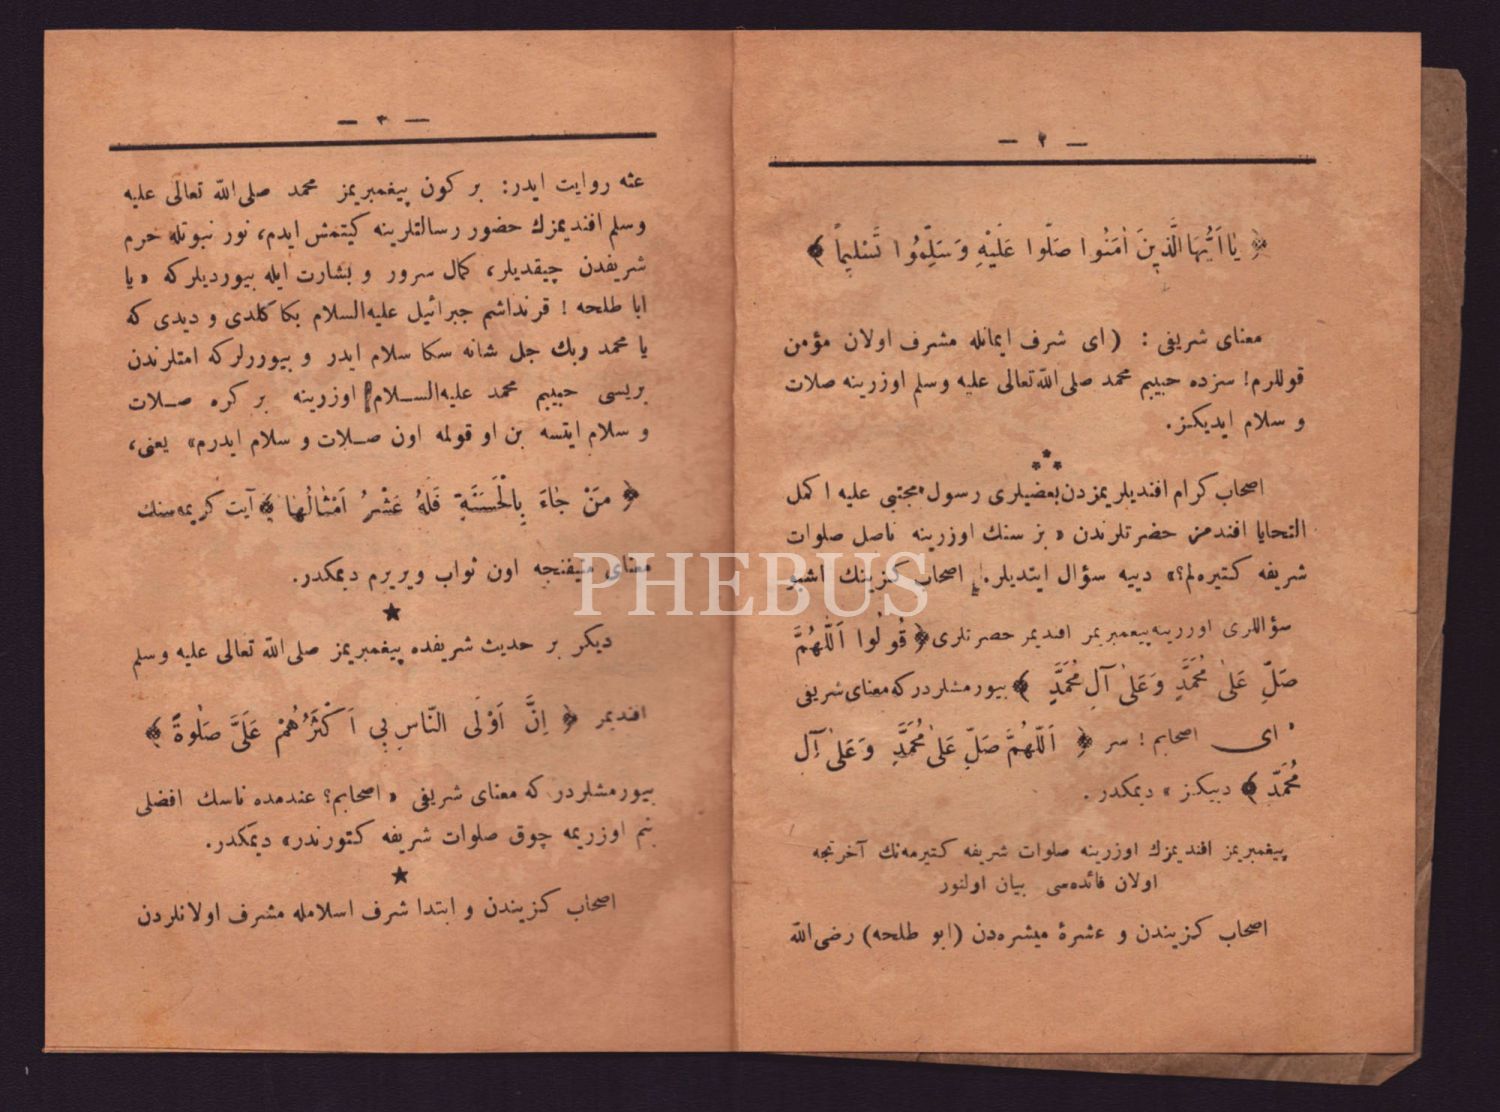 — ٢ —
﴿ يَا اَيُّهَا الَّذِينَ اٰمَنُوا صَلُّوا عَلَيْهِ وَسَلِّمُوا تَسْلِيمًا ﴾
معنای شریفی : (ای شرف ایمانله مشرف اولان مؤمن
قوللرم! سزده حبیبم محمد صلی‌الله‌تعالی علیه وسلم اوزرینه صلات
و سلام ایدیكز.
اصحاب كرام افندیلریمزدن‌بعضیلری رسول مجتبی علیه اكمل
التحایا افندمز حضرتلرندن « بز سنك اوزرینه ناصل صلوات
شریفه كتیره‌لم؟» دییه سؤال ایتدیلر. اصحاب كزینك اشبو
سؤاللری اوزرینه پیغمبریمز افندیمز حضرتلری ﴿ قُولُوا اَللّٰهُمَّ
صَلِّ عَلٰى مُحَمَّدٍ وَعَلٰى آلِ مُحَمَّدٍ ﴾ بیورمشلردركه معنای شریفی
« ای اصحابم! سز ﴿ اَللّٰهُمَّ صَلِّ عَلٰى مُحَمَّدٍ وَعَلٰى آلِ
مُحَمَّدٍ ﴾ دییكز » دیمكدر .
پیغمبریمز افندیمزك اوزرینه صلوات شریفه كتیرمه‌نك آخرتجه
اولان فائده‌سی بیان اولنور
اصحاب كزیندن و عشرهٔ مبشره‌دن (ابو طلحه) رضی‌الله
— ٣ —
عنه روایت ایدر: بر كون پیغمبریمز محمد صلی‌الله تعالی علیه
وسلم افندیمزك حضور رسالتلرینه كیتمش ایدم، نور نبوتله حرم
شریفدن چیقدیلر، كمال سرور و بشارت ایله بیوردیلركه « یا
ابا طلحه ! قرنداشم جبرائیل علیه‌السلام بكا كلدی و دیدی كه
یا محمد ربك جل شانه سكا سلام ایدر و بیوررلركه امتلرندن
بریسی حبیبم محمد علیه‌السلام اوزرینه بر كره صلات
و سلام ایتسه بن او قولمه اون صلات و سلام ایدرم» یعنی،
﴿ مَنْ جَاءَ بِالْحَسَنَةِ فَلَهُ عَشْرُ اَمْثَالُهَا ﴾ آیت كریمه‌سنك
معنای منیفنجه اون ثواب ویریرم دیمكدر.
دیكر بر حدیث شریفده پیغمبریمز صلی‌الله تعالی علیه وسلم
افندیمز ﴿ اِنَّ اَوْلَى النَّاسِ بِي اَكْثَرُهُمْ عَلَيَّ صَلٰوةً ﴾
بیورمشلردر كه معنای شریفی « اصحابم؟ عندمده ناسك افضلی
بنم اوزریمه چوق صلوات شریفه كتورندر» دیمكدر.
اصحاب كزیندن و ابتدا شرف اسلامله مشرف اولانلردن
PHEBUS